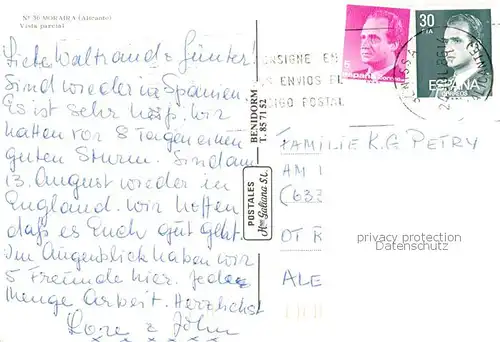 Nº 56 MORAIRA (Alicante)
Vista parcial
Liebe Waltraud & Günter!
Sind wieder in Spanien
Es ist sehr heiß. Wir
hatten vor 8 Tagen einen
guten Sturm. Sind am
13. August wieder in
England. Wir hoffen
daß es Euch gut geht.
Im Augenblick haben wir
5 Freunde hier. Jede
Menge Arbeit. Herzlichst
Lore & John
BENIDORM
T. 85 71 52
POSTALES
Hnos Galiana S.L.
5
España
30
PTA
ESPAÑA
CORREOS
CONSIGNE EN
ENVIOS EL
CODIGO POSTAL
FAMILIE K.G PETRY
AM
(633
OT
ALE
privacy protection
Datenschutz